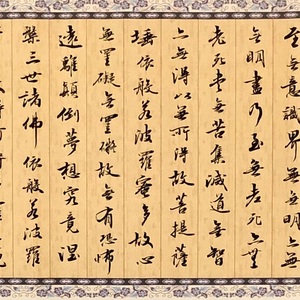 至無意識界無無明亦無
無明盡乃至無老死亦無
老死盡無苦集滅道無智
亦無得以無所得故菩提薩
埵依般若波羅蜜多故心
無罣礙無罣礙故無有恐怖
遠離顛倒夢想究竟涅
槃三世諸佛依般若波羅